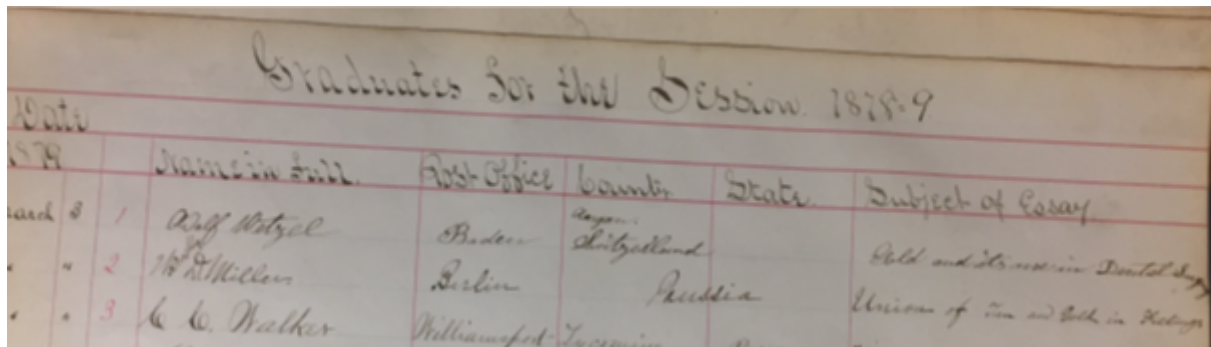 Graduates for the Session. 1878-9
Date
1879 Name in Full. Post Office County State. Subject of Essay.
March 3 1 Adolf Wetzel Baden Switzerland Gold and its use in Dental
" " 2 W D Miller Berlin Prussia Union of Tin and Gold in Fillings
" " 3 C. C. Walker Williamsport Lycoming